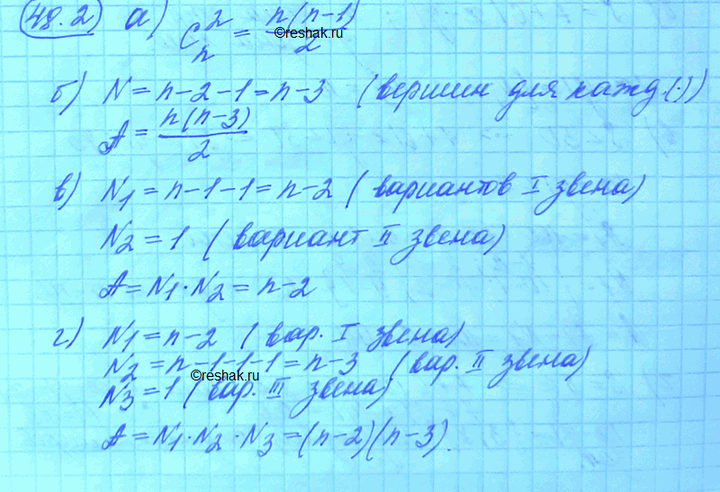 48.2) а) C_n^2 = n(n-1)/2
©reshak.ru
б) N = n-2-1 = n-3 (вершин для кажд.(·))
A = n(n-3)/2
в) N₁ = n-1-1 = n-2 (вариантов I звена)
N₂ = 1 (вариант II звена)
A = N₁·N₂ = n-2
г) N₁ = n-2 (вар. I звена)
N₂ = n-1-1-1 = n-3 (вар. II звена)
©reshak.ru
N₃ = 1 (вар. III звена)
A = N₁·N₂·N₃ = (n-2)(n-3).